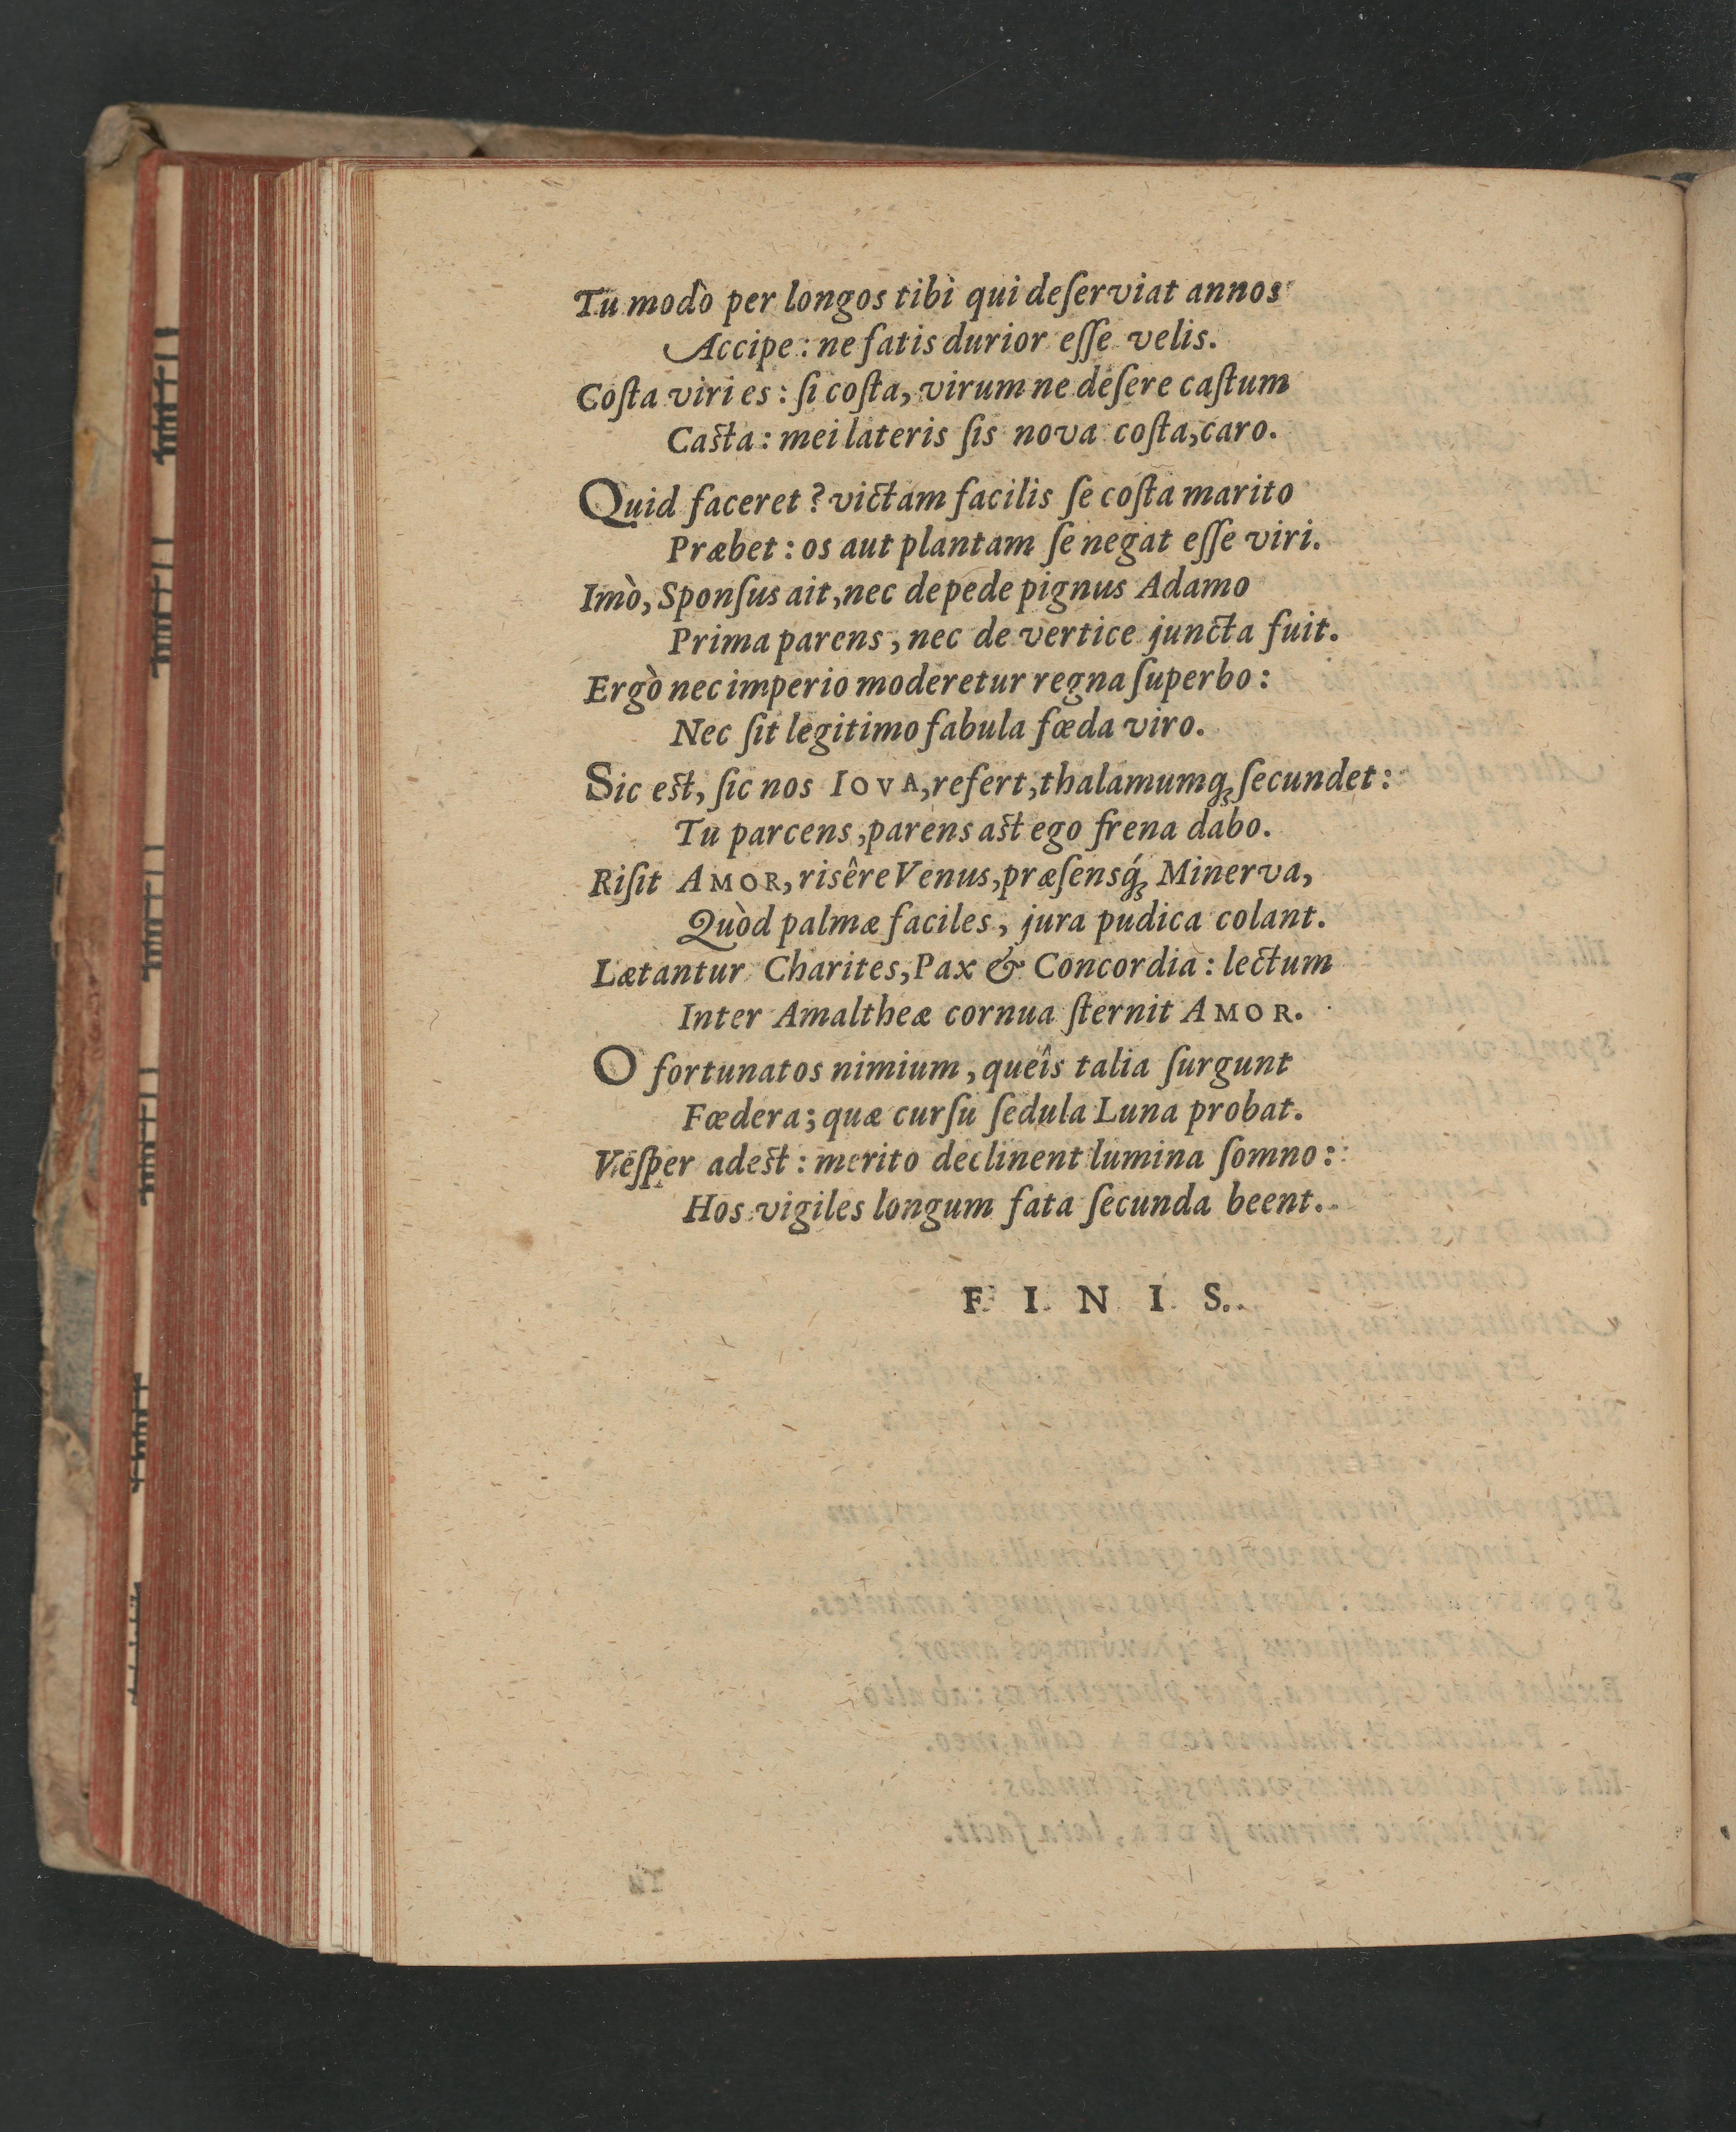 Tu modò per longos tibi qui deſerviat annos
Accipe: ne fatis durior eſſe velis.
Coſta viri es: ſi coſta, virum ne deſere caſtum
Caſta: mei lateris ſis nova coſta, caro.
Quid faceret? victam facilis ſe coſta marito
Præbet: os aut plantam ſe negat eſſe viri.
Imò, Sponſus ait, nec de pede pignus Adamo
Prima parens, nec de vertice juncta fuit.
Ergò nec imperio moderetur regna ſuperbo:
Nec ſit legitimo fabula fœda viro.
Sic eſt, ſic nos IOVA, refert, thalamumq́ꝫ ſecundet:
Tu parcens, parens aſt ego frena dabo.
Riſit AMOR, risêre Venus, præſensq́ꝫ Minerva,
Quòd palmæ faciles, jura pudica colant.
Lætantur Charites, Pax & Concordia: lectum
Inter Amaltheæ cornua ſternit AMOR.
O fortunatos nimium, queîs talia ſurgunt
Fœdera; quæ curſu ſedula Luna probat.
Veſper adeſt: merito declinent lumina ſomno:
Hos vigiles longum fata ſecunda beent.
FINIS.